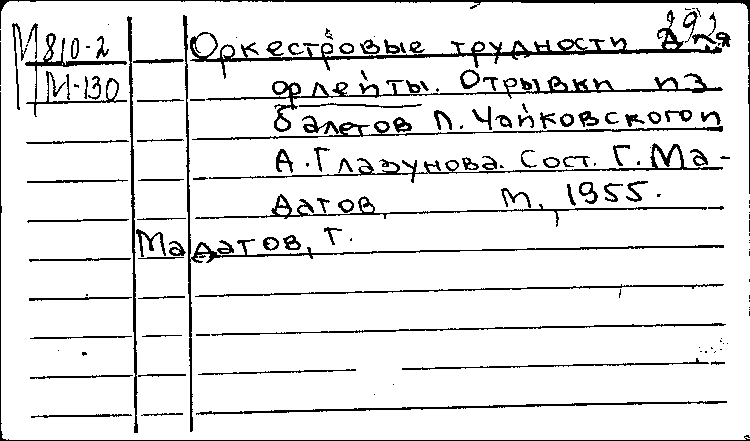 М 810-2 Оркестровые трудности для
М-130 флейты. Отрывки из
балетов П. Чайковского и
А. Глазунова. Сост. Г. Ма-
датов, М., 1955.
Мадатов, Г.